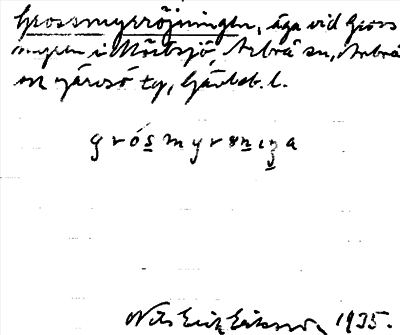 Grossmyrröjningen, äga vid Gross
myren i Mörtsjö, Arbrå sn, Arbrå
och Järvsö tg, Gävleb. l.
grósmyrsniza
Nils Erik Eriksson 1935.